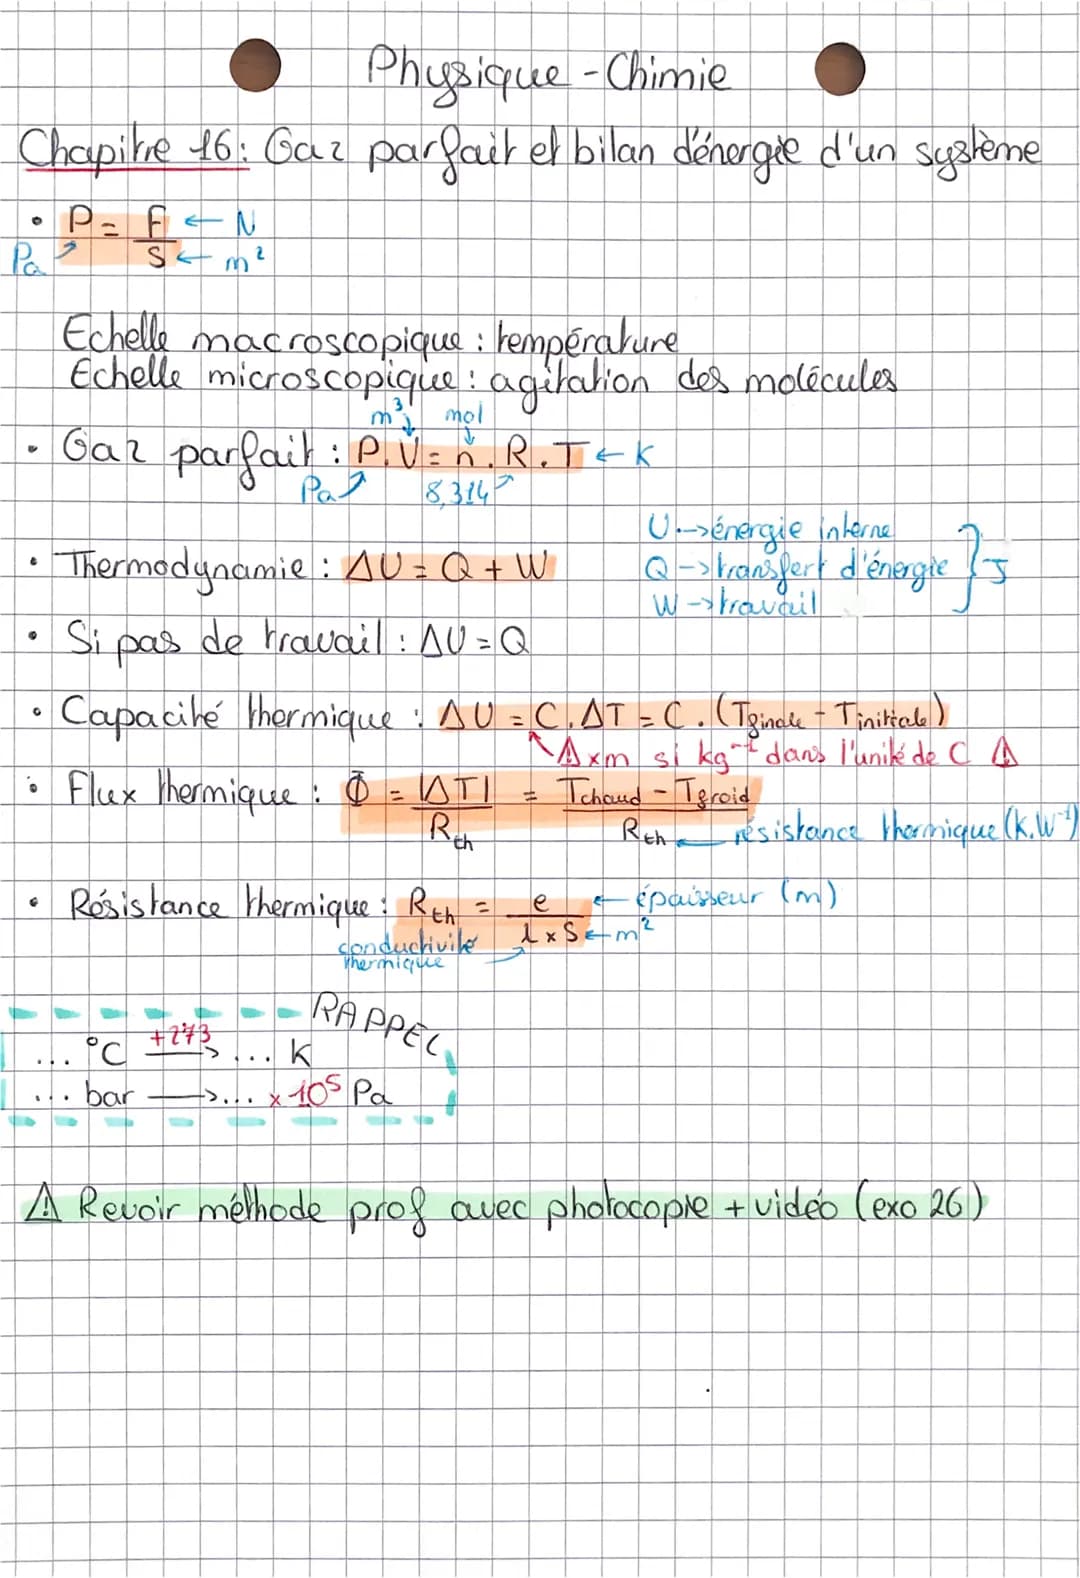 Physique - Chimie
Chapitre 16 : Gaz parfait et bilan d'énergie d'un système
• P = F/S ← N
Pa ← m²
Echelle macroscopique : température
Echelle microscopique : agitation des molécules
m³ mol
• Gaz parfait : P.V = n.R.T ← K
Pa 8,314
U → énergie interne
• Thermodynamie : ΔU = Q + W
Q → transfert d'énergie } J
W → travail
• Si pas de travail : ΔU = Q
• Capacité thermique : ΔU = C.ΔT = C.(Tfinale - Tinitiale)
⚠ xm si kg⁻¹ dans l'unité de C ⚠
• Flux thermique : Φ = |ΔT|/Rth = Tchaud - Tfroid/Rth
← résistance thermique (K.W⁻¹)
• Résistance thermique : Rth = e/λ x S ← épaisseur (m)
conductivité ← m²
thermique
RAPPEL
... °C +273 → ... K
... bar → ... x 10⁵ Pa
⚠ Revoir méthode prof avec photocopie + vidéo (exo 26)